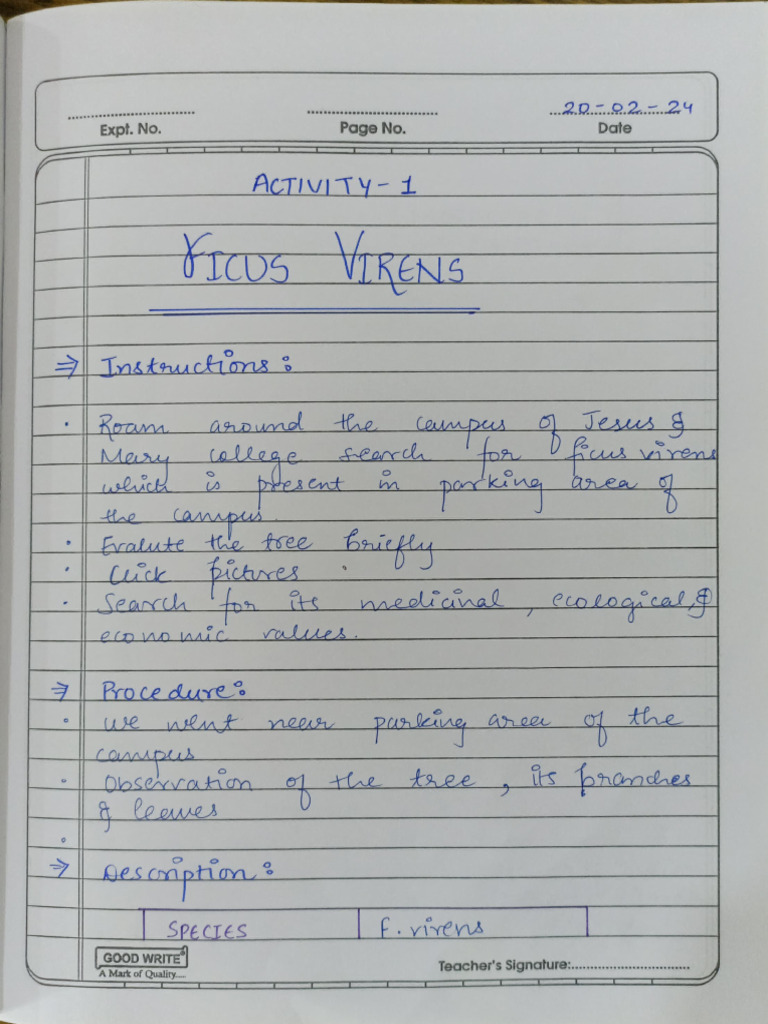 20-02-24
Expt. No. Page No. Date
ACTIVITY-1
FICUS VIRENS
⇒ Instructions:
• Roam around the campus of Jesus &
Mary college search for ficus virens
which is present in parking area of
the campus.
• Evalute the tree briefly
• Click pictures .
• Search for its medicinal, ecological, &
economic values.
⇒ Procedure:
• we went near parking area of the
campus
• Observation of the tree, its branches
& leaves
•
⇒ Description:
SPECIES F. virens
GOOD WRITE
A Mark of Quality....
Teacher's Signature: